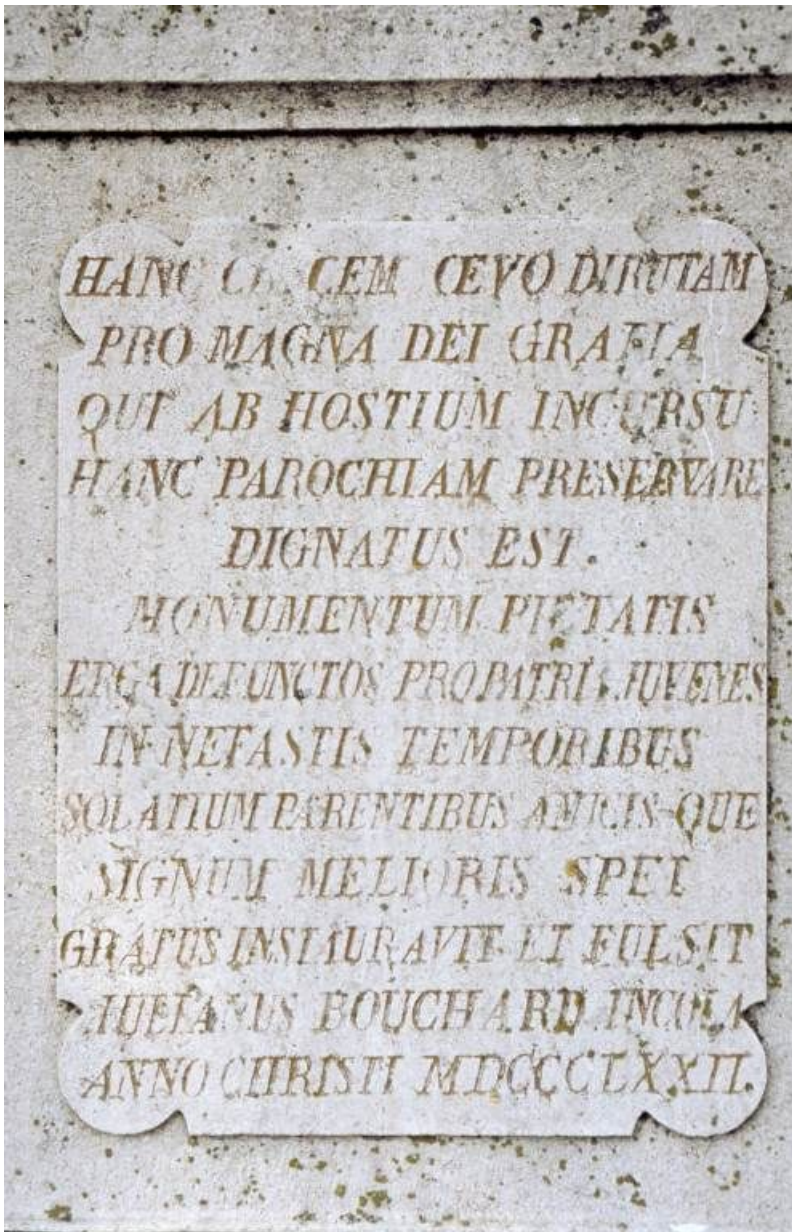 HANC CRUCEM ŒVO DIRUTAM
PRO MAGNA DEI GRATIA
QUI AB HOSTIUM INCURSU
HANC PAROCHIAM PRESERVARE
DIGNATUS EST.
MONUMENTUM PIETATIS
ERGA DEFUNCTOS PRO PATRIA JUVENES
IN NEFASTIS TEMPORIBUS
SOLATIUM PARENTIBUS AMICIS-QUE
SIGNUM MELIORIS SPEI
GRATUS INSTAURAVIT ET FULSIT
JULIANUS BOUCHARD INCOLA
ANNO CHRISTI MDCCCLXXII.